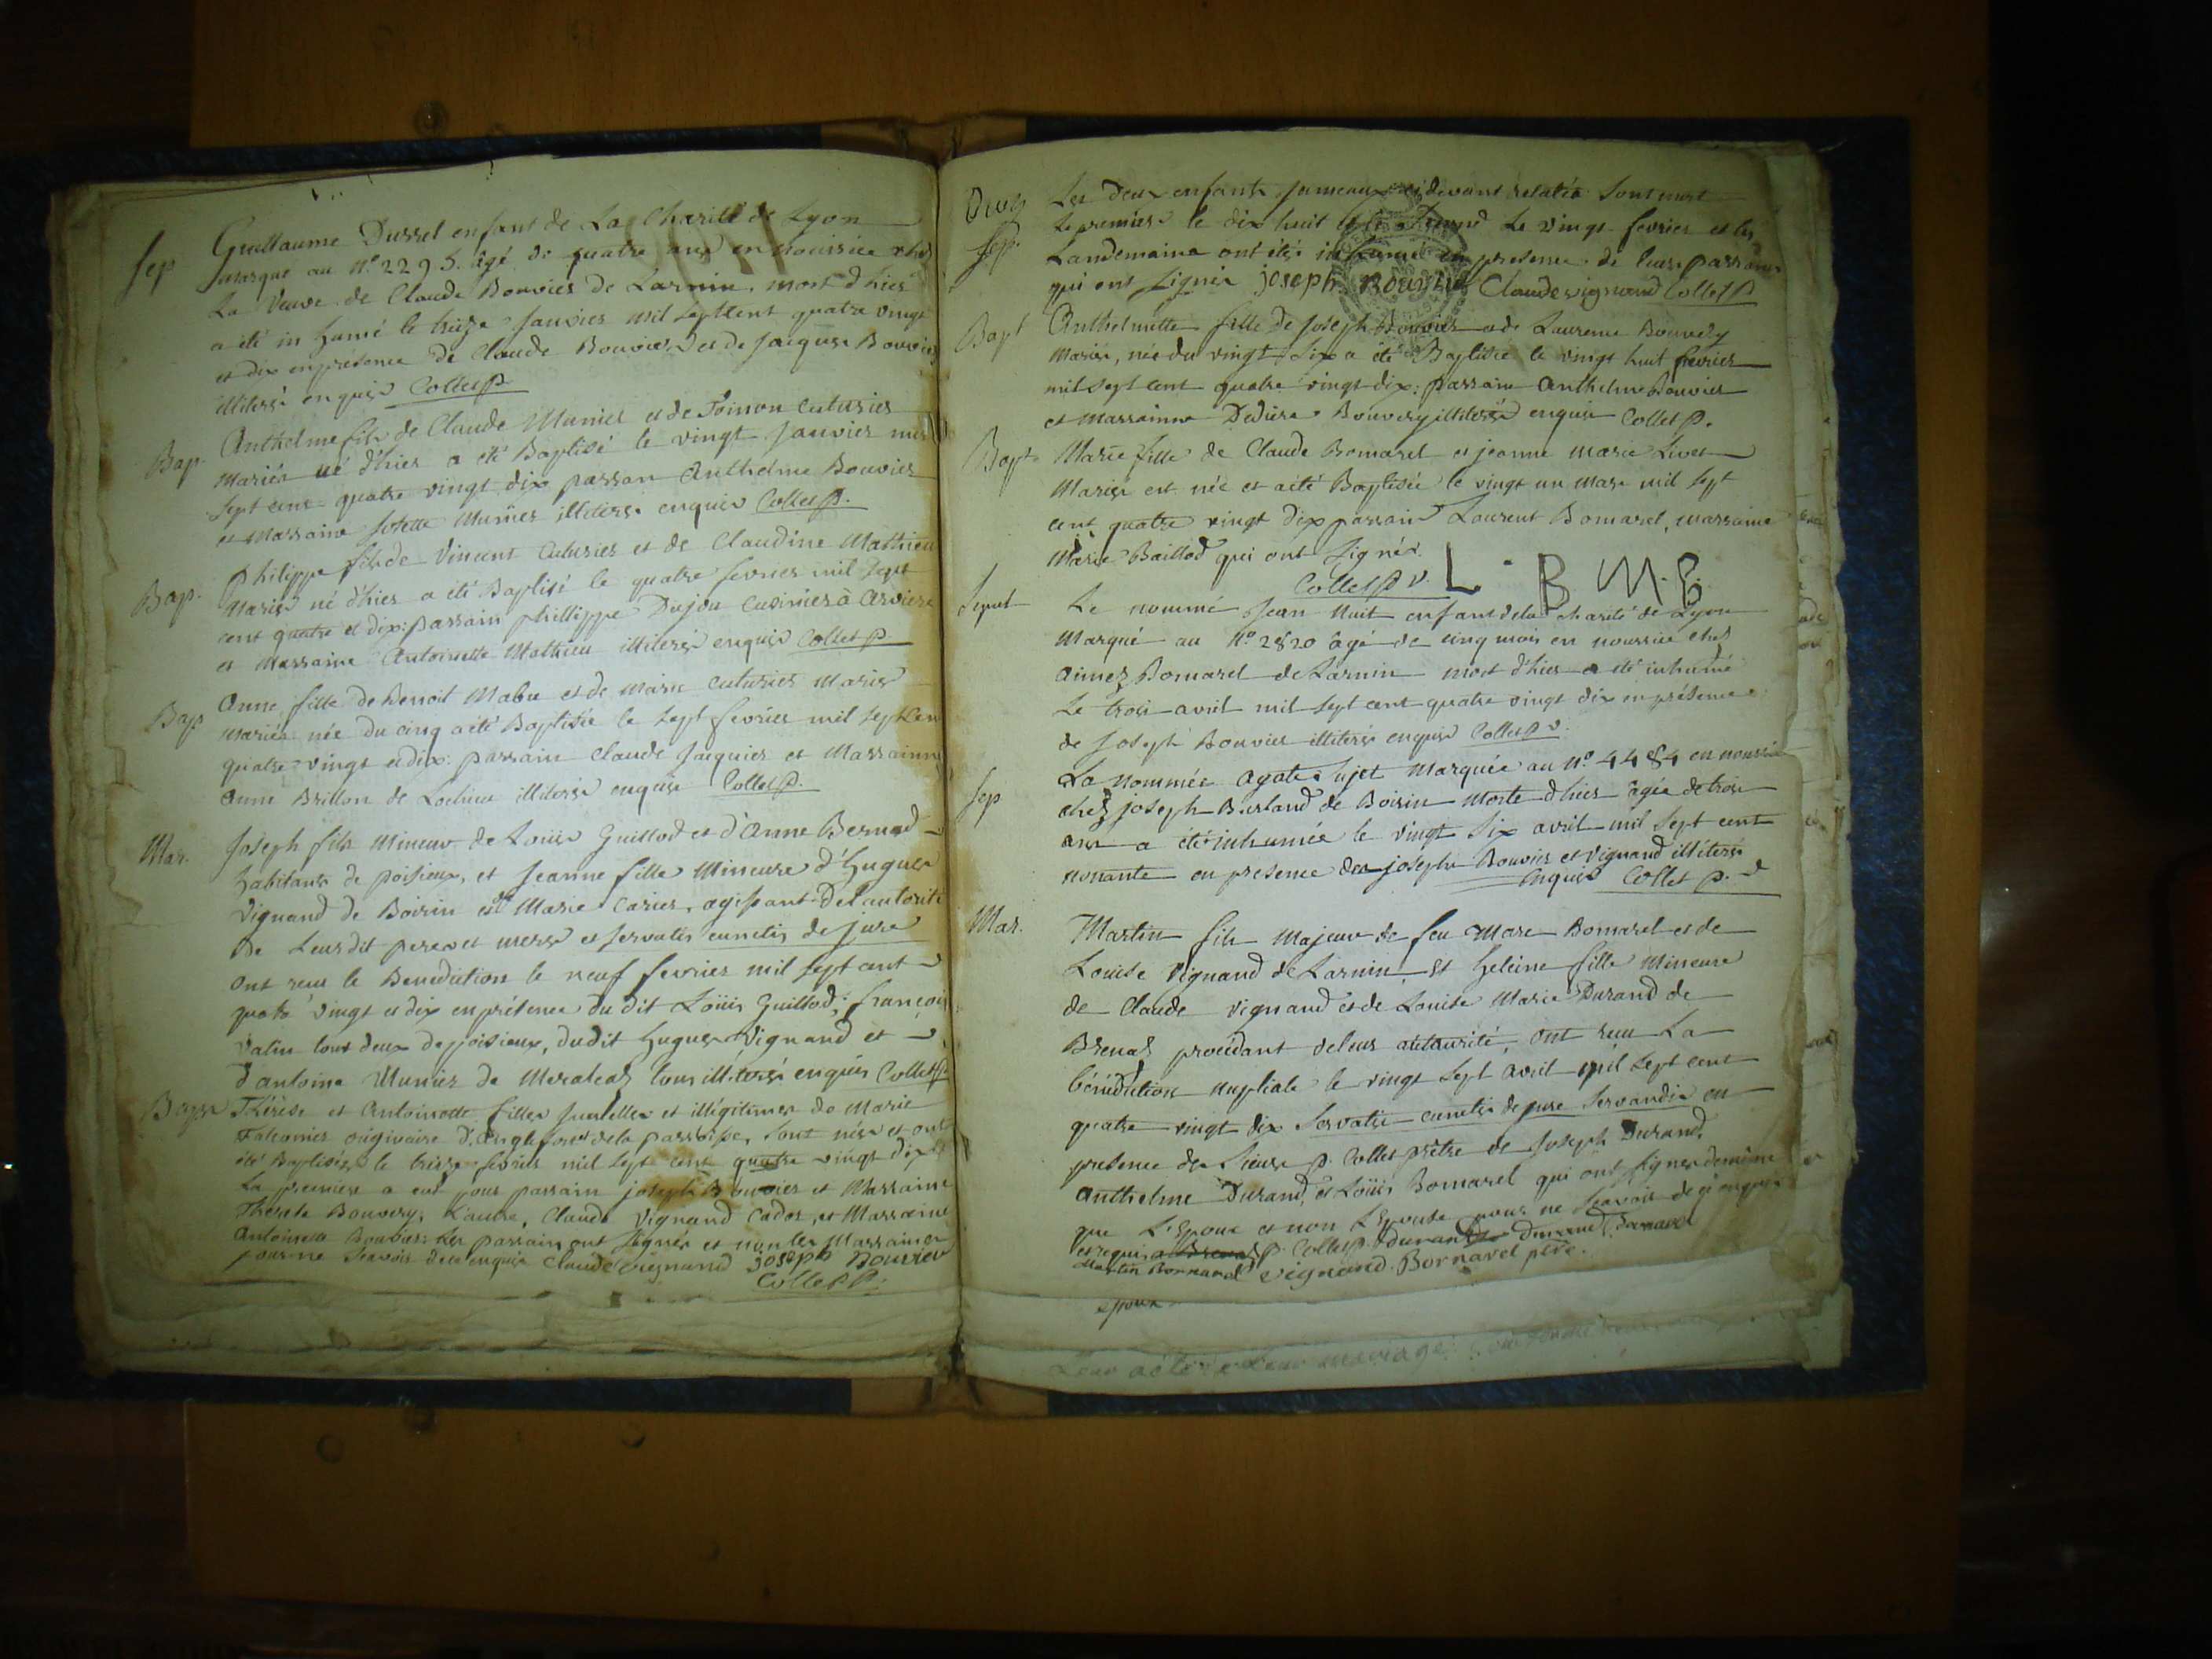 Sep Guillaume Dussel enfant de La Charité de Lyon
marqué au N.º 2295. âgé de quatre ans en nourice chez
La Veuve de Claude Bouvier de Larnin, mort d'hier
a été in humé le treize janvier mil sept cent quatre vingt
et dix en présence de Claude Bouvier et de Jacques Bouvier
illiterés enquis Collet p.
Bap. Anthelme fils de Claude Munier et de Toinon Cuturier
mariés né d'hier a été Baptisé le vingt janvier mil
sept cent quatre vingt dix parrain Anthelme Bouvier
et marraine Munier illiterés enquis Collet p.
Bap. Philippe fils de Vincent Cuturier et de Claudine Mathieu
mariés né d'hier a été Baptisé le quatre fevrier mil sept
cent quatre et dix: parrain phillippe Dujon à
et Marraine Antoinette Mathieu illiterés enquis Collet p.
Bap. Anne fille de Benoit Mabu et de marie cuturier
mariés née du cinq a été Baptisée le sept fevrier mil sept cen
quatre vingt et dix: parrain Claude Jacquier et Marrainne
anne Brillon de Lochieu illiterés enquis Collet p.
Mar. Joseph fils Mineur de Louis Guillod et d'Anne Bernard
habitants de poisieux, et Jeanne fille Mineure d'Hugues
Vignand de Boirin et Marie Carier, agissant de l'autorité
de leurs dit peres et meres et servatis cunctis de jure
ont recu le Benediction le neuf fevrier mil sept cent
quatre vingt et dix en présence du dit Louis Guillod, françois
Vatin tout deux de poisieux, du dit hugues Vignand et
d'antoine Munier de tous illiterés enquis Collet p.
Bap. Thérèse et Antoinette filles jumelles et illégitimes de Marie
Falconier originaire d'anglefort de la parroisse, sont nées et ont
été Baptisées le treize fevrier mil sept cent quatre vingt dix
La premiere a eue pour parrain joseph Bouvier et Marraine
Therese Bouvery; L'autre, Claude Vignand Cadet, et Marraine
Antoinette les parrain ont signés et non les Marraines
pour ne sçavoir de ce enquis Claude vignand joseph Bouvier
Collet p.
Deux Les deux enfants jumeaux ci devant relatés sont mort
Sep. Le premier le dix huit et le second Le vingt fevrier et les
Landemains ont étés inhumé en presence de leurs parrains
qui ont signés joseph Bouvier Claude vignand Collet p.
Bapt Anthelmette fille de Joseph Bouvier et de Laurence Bouvery
Mariés, née du vingt six a été Baptisée le vingt huit fevrier
mil sept cent quatre vingt dix: parrain anthelme Bouvier
et marrainne Dediere Bouvery illiterés enquis Collet p.
Bapt. Marie fille de Claude Bornarel et jeanne marie Livet
Mariés est née et a été Baptisée le vingt un mars mil sept
cent quatre vingt dix parrain Laurent Bornarel, marraine
Marie Baillod qui ont signés.
Collet p. v. L. B M. B.
Le nommé Jean Nuit enfant de la charité de Lyon
Marqué au N.º 2820 âgé de cinq mois en nourrice chez
aimez Bornarel de Larnin mort d'hier a été inhumé
Le trois avril mil sept cent quatre vingt dix en présence
de Joseph Bouvier illiterés enquis Collet p. v.
Sep La nommée agate Sujet Marquée au N.º 4484 en nourrice
chez joseph Burland de Boirin Morte d'hier agée de trois
ans a été inhumée le vingt six avril mil sept cent
nonante en presence de joseph Bouvier et Vignand illiterés
enquis Collet p.
Mar. Martin fils Majeur de feu Marc Bornarel et de
Louise Vignand de Larnin, et heleine fille mineure
de Claude vignand et de Louise Marie Durand de
Brenaz procédant de leur authorité, ont reçu La
bénédiction nuptiale le vingt sept avril mil sept cent
quatre vingt dix servatis cunctis de jure servandis en
presence des sieurs p. Collet prêtre de Joseph Durand,
anthelme Durand, et Louis Bornarel qui ont signes de même
que L'Epoux et non L'Epouse pour ne sçavoir de ce enquise
et requise p. Collet p. durand durand durand
Martin Bornarel vignand. Bornarel pere.
epoux
Leur acte de leur mariage